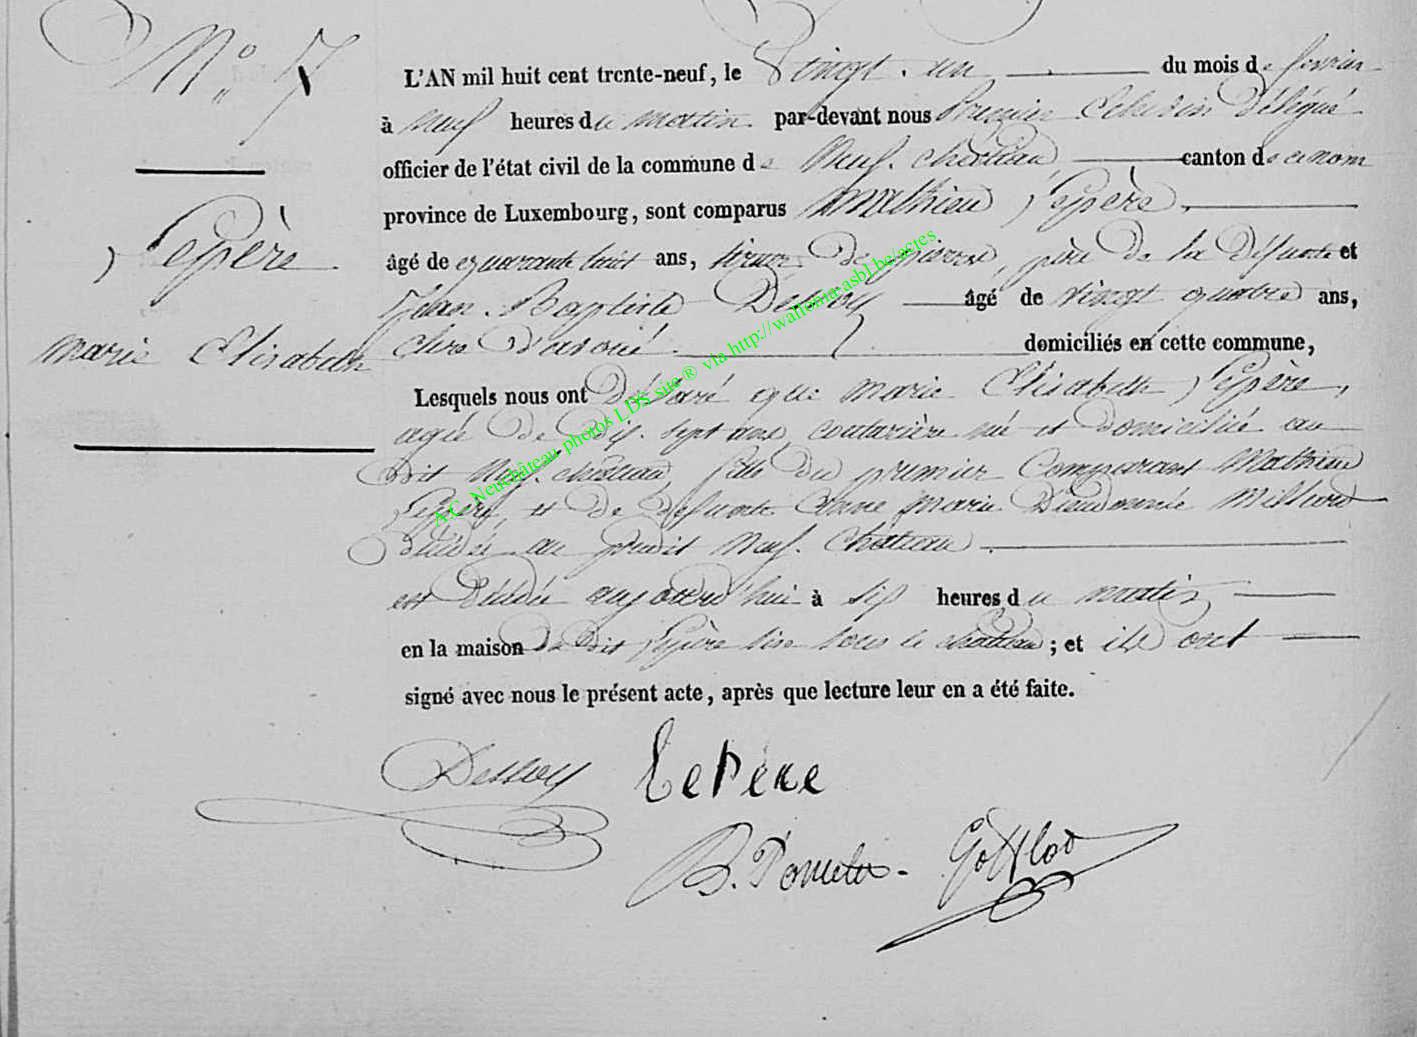 N° 7
Lepère
marie Elisabeth
L'AN mil huit cent trente-neuf, le Vingt-un du mois de fevrier
à neuf heures du matin par-devant nous Premier Echevin délégué
officier de l'état civil de la commune de Neufchateau canton de ce nom
province de Luxembourg, sont comparus Mathieu Lepère,
âgé de quarante huit ans, tireur de pierre, père de la défunte et
Jean Baptiste Dessoy âgé de vingt quatre ans,
Clerc d'avoué domiciliés en cette commune,
Lesquels nous ont déclaré que marie Elisabeth Lepère,
agée de dix-sept ans, couturière né et domicilié au
dit Neufchateau, fille du premier Comparant Mathieu
Lepère, et de defunte Anne marie Dieudonnée Millard
décédée au prédit Neufchateau
est décédée aujourd'hui à six heures du matin
en la maison du dit Lepère sise sous le chateau; et ils ont
signé avec nous le présent acte, après que lecture leur en a été faite.
Dessoy LePère
B.
A.C. Neufchâteau photos LDS site ® via http://wallonia-asbl.be/actes